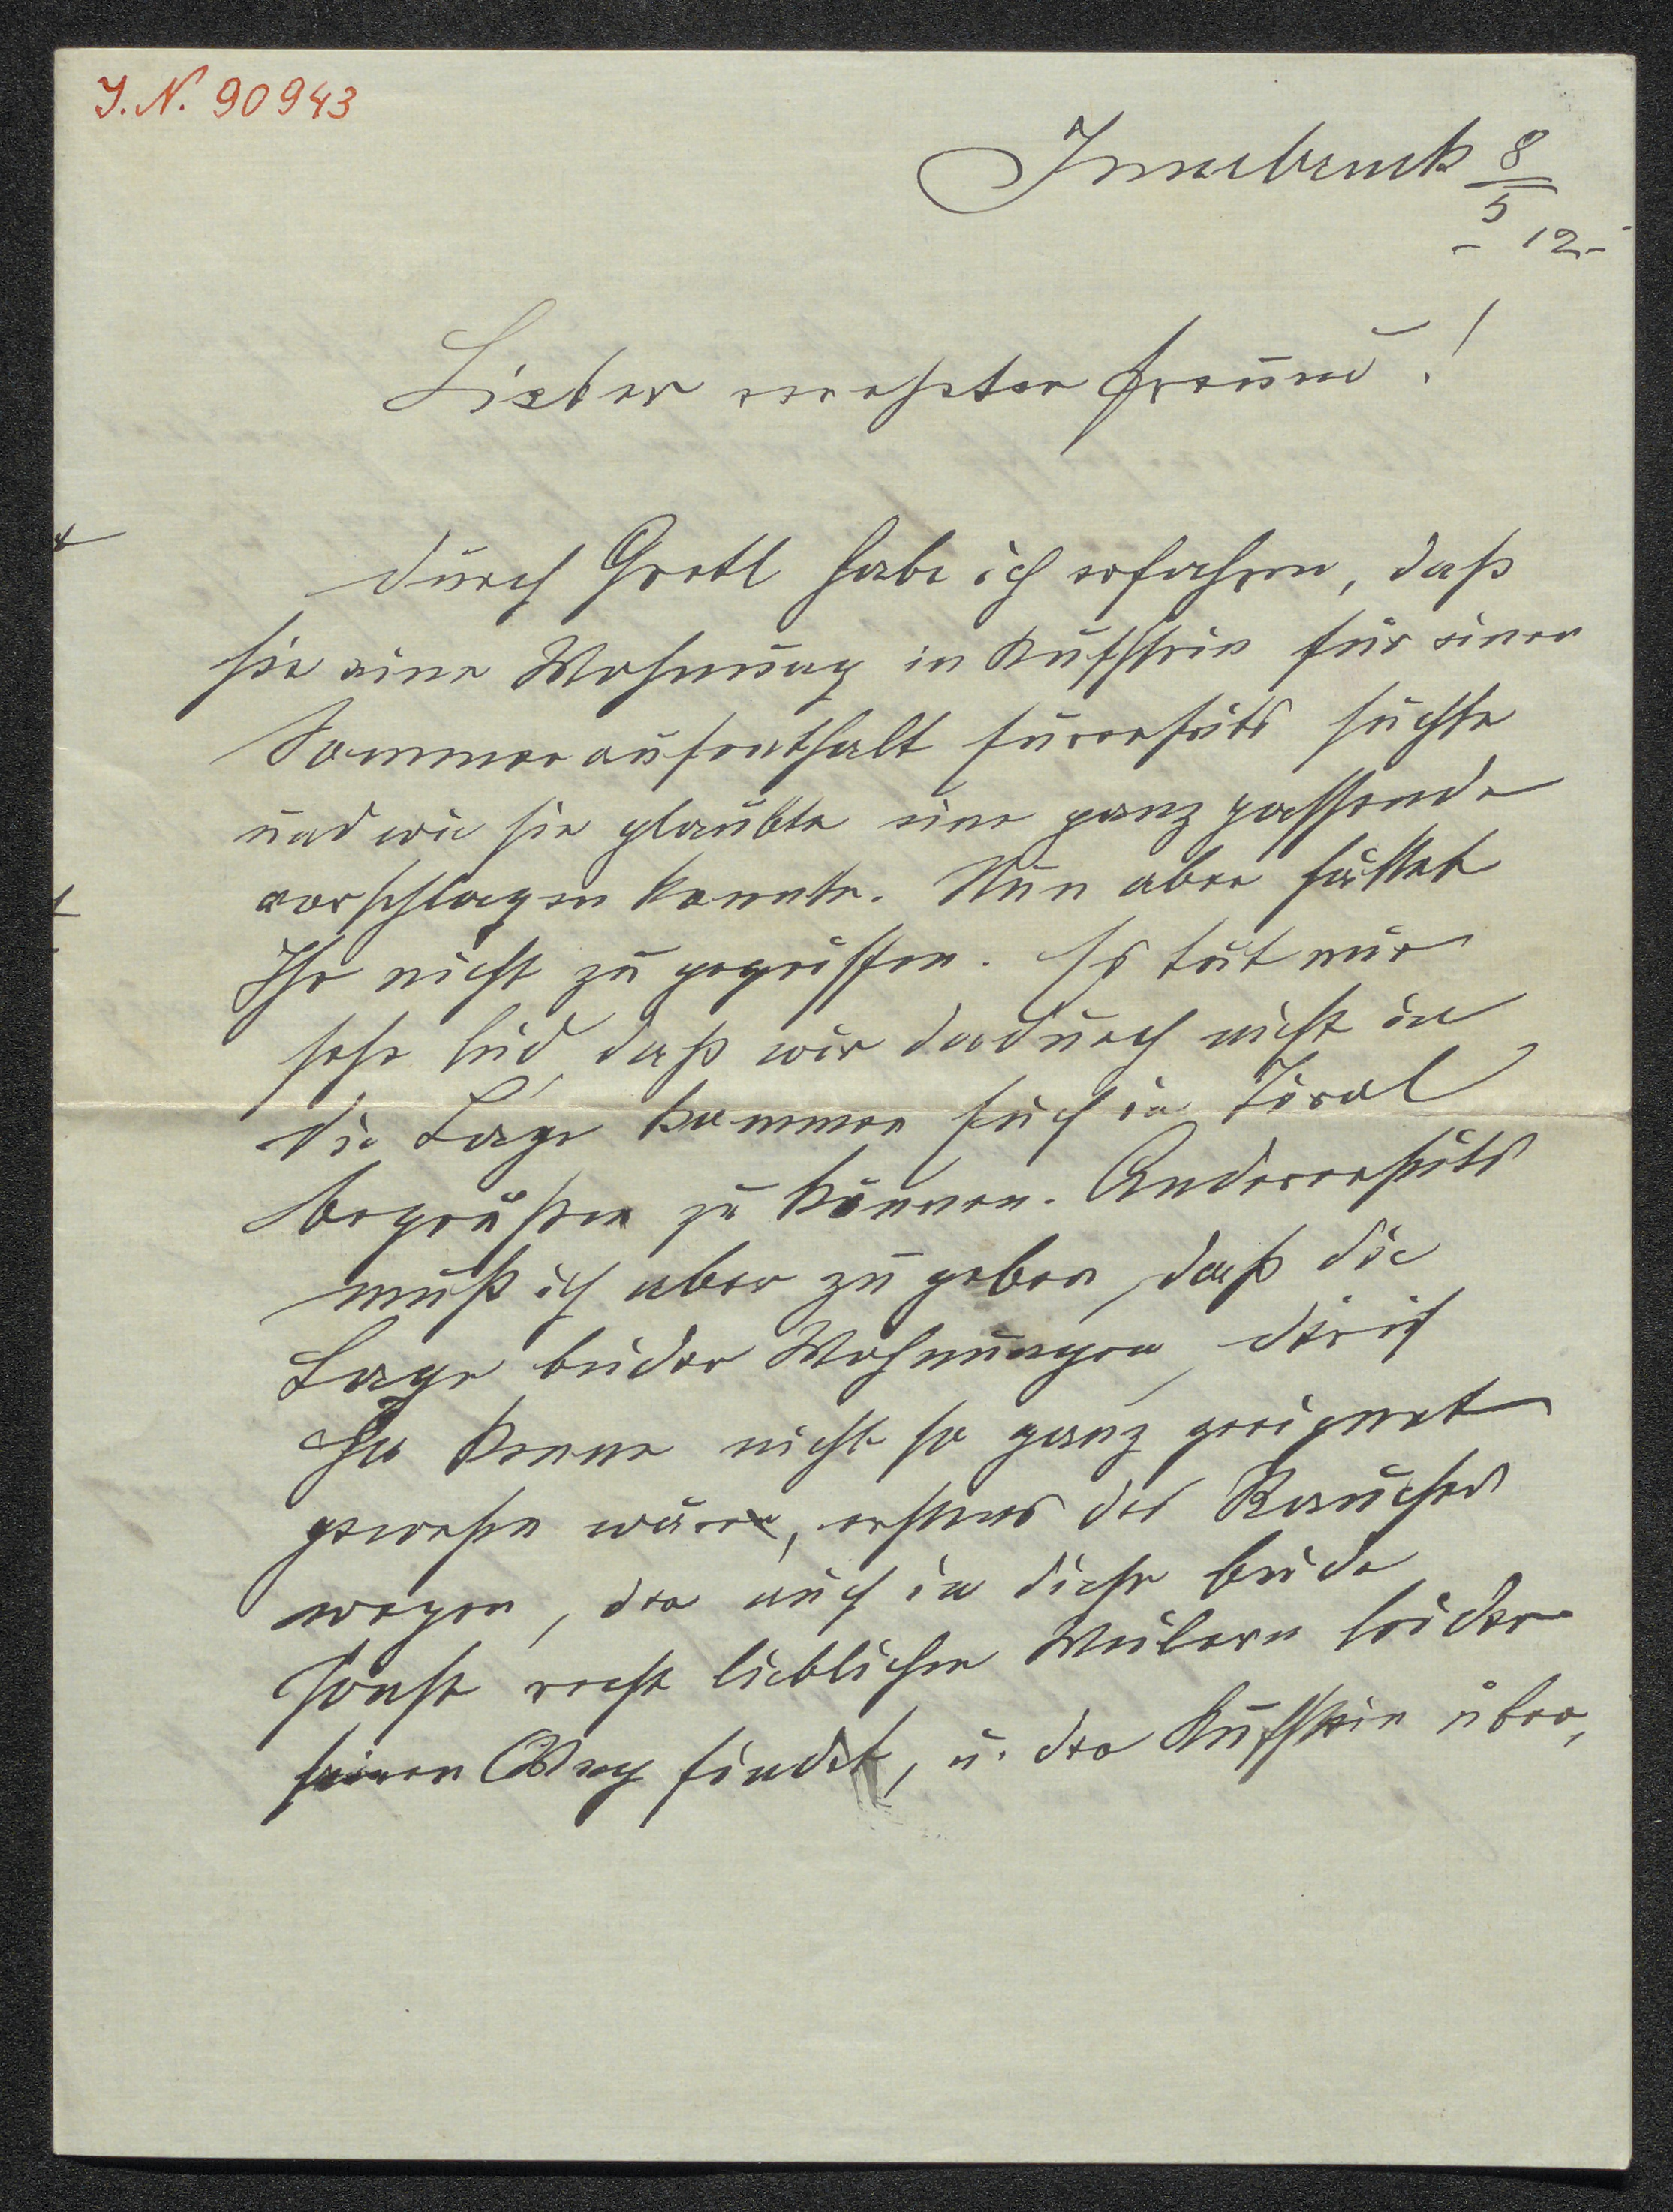 I.N. 90943
Innsbruck 8/5
- 12 -
Lieber verehrter Freund!
durch Gretl habe ich erfahren, daß
sie eine Wohnung in Kufstein für einen
Sommeraufenthalt Eurerseits suchte
und wie sie glaubte eine ganz passende
vorschlagen konnte. Nun aber hättet
Ihr nicht zu gegriffen. Es tut mir
sehr leid, daß wir dadurch nicht in
die Lage kommen Euch in Tirol
begrüßen zu können. Andererseits
muß ich aber zu geben, daß die
Lage beider Wohnungen, die ich
ja kenne nicht so ganz geeignet
gewesen wäre, erstens des Rauches
wegen, der auch in diese beide
sonst recht lieblichen Weilern leider
seinen Weg findet, u. der Kufstein über,